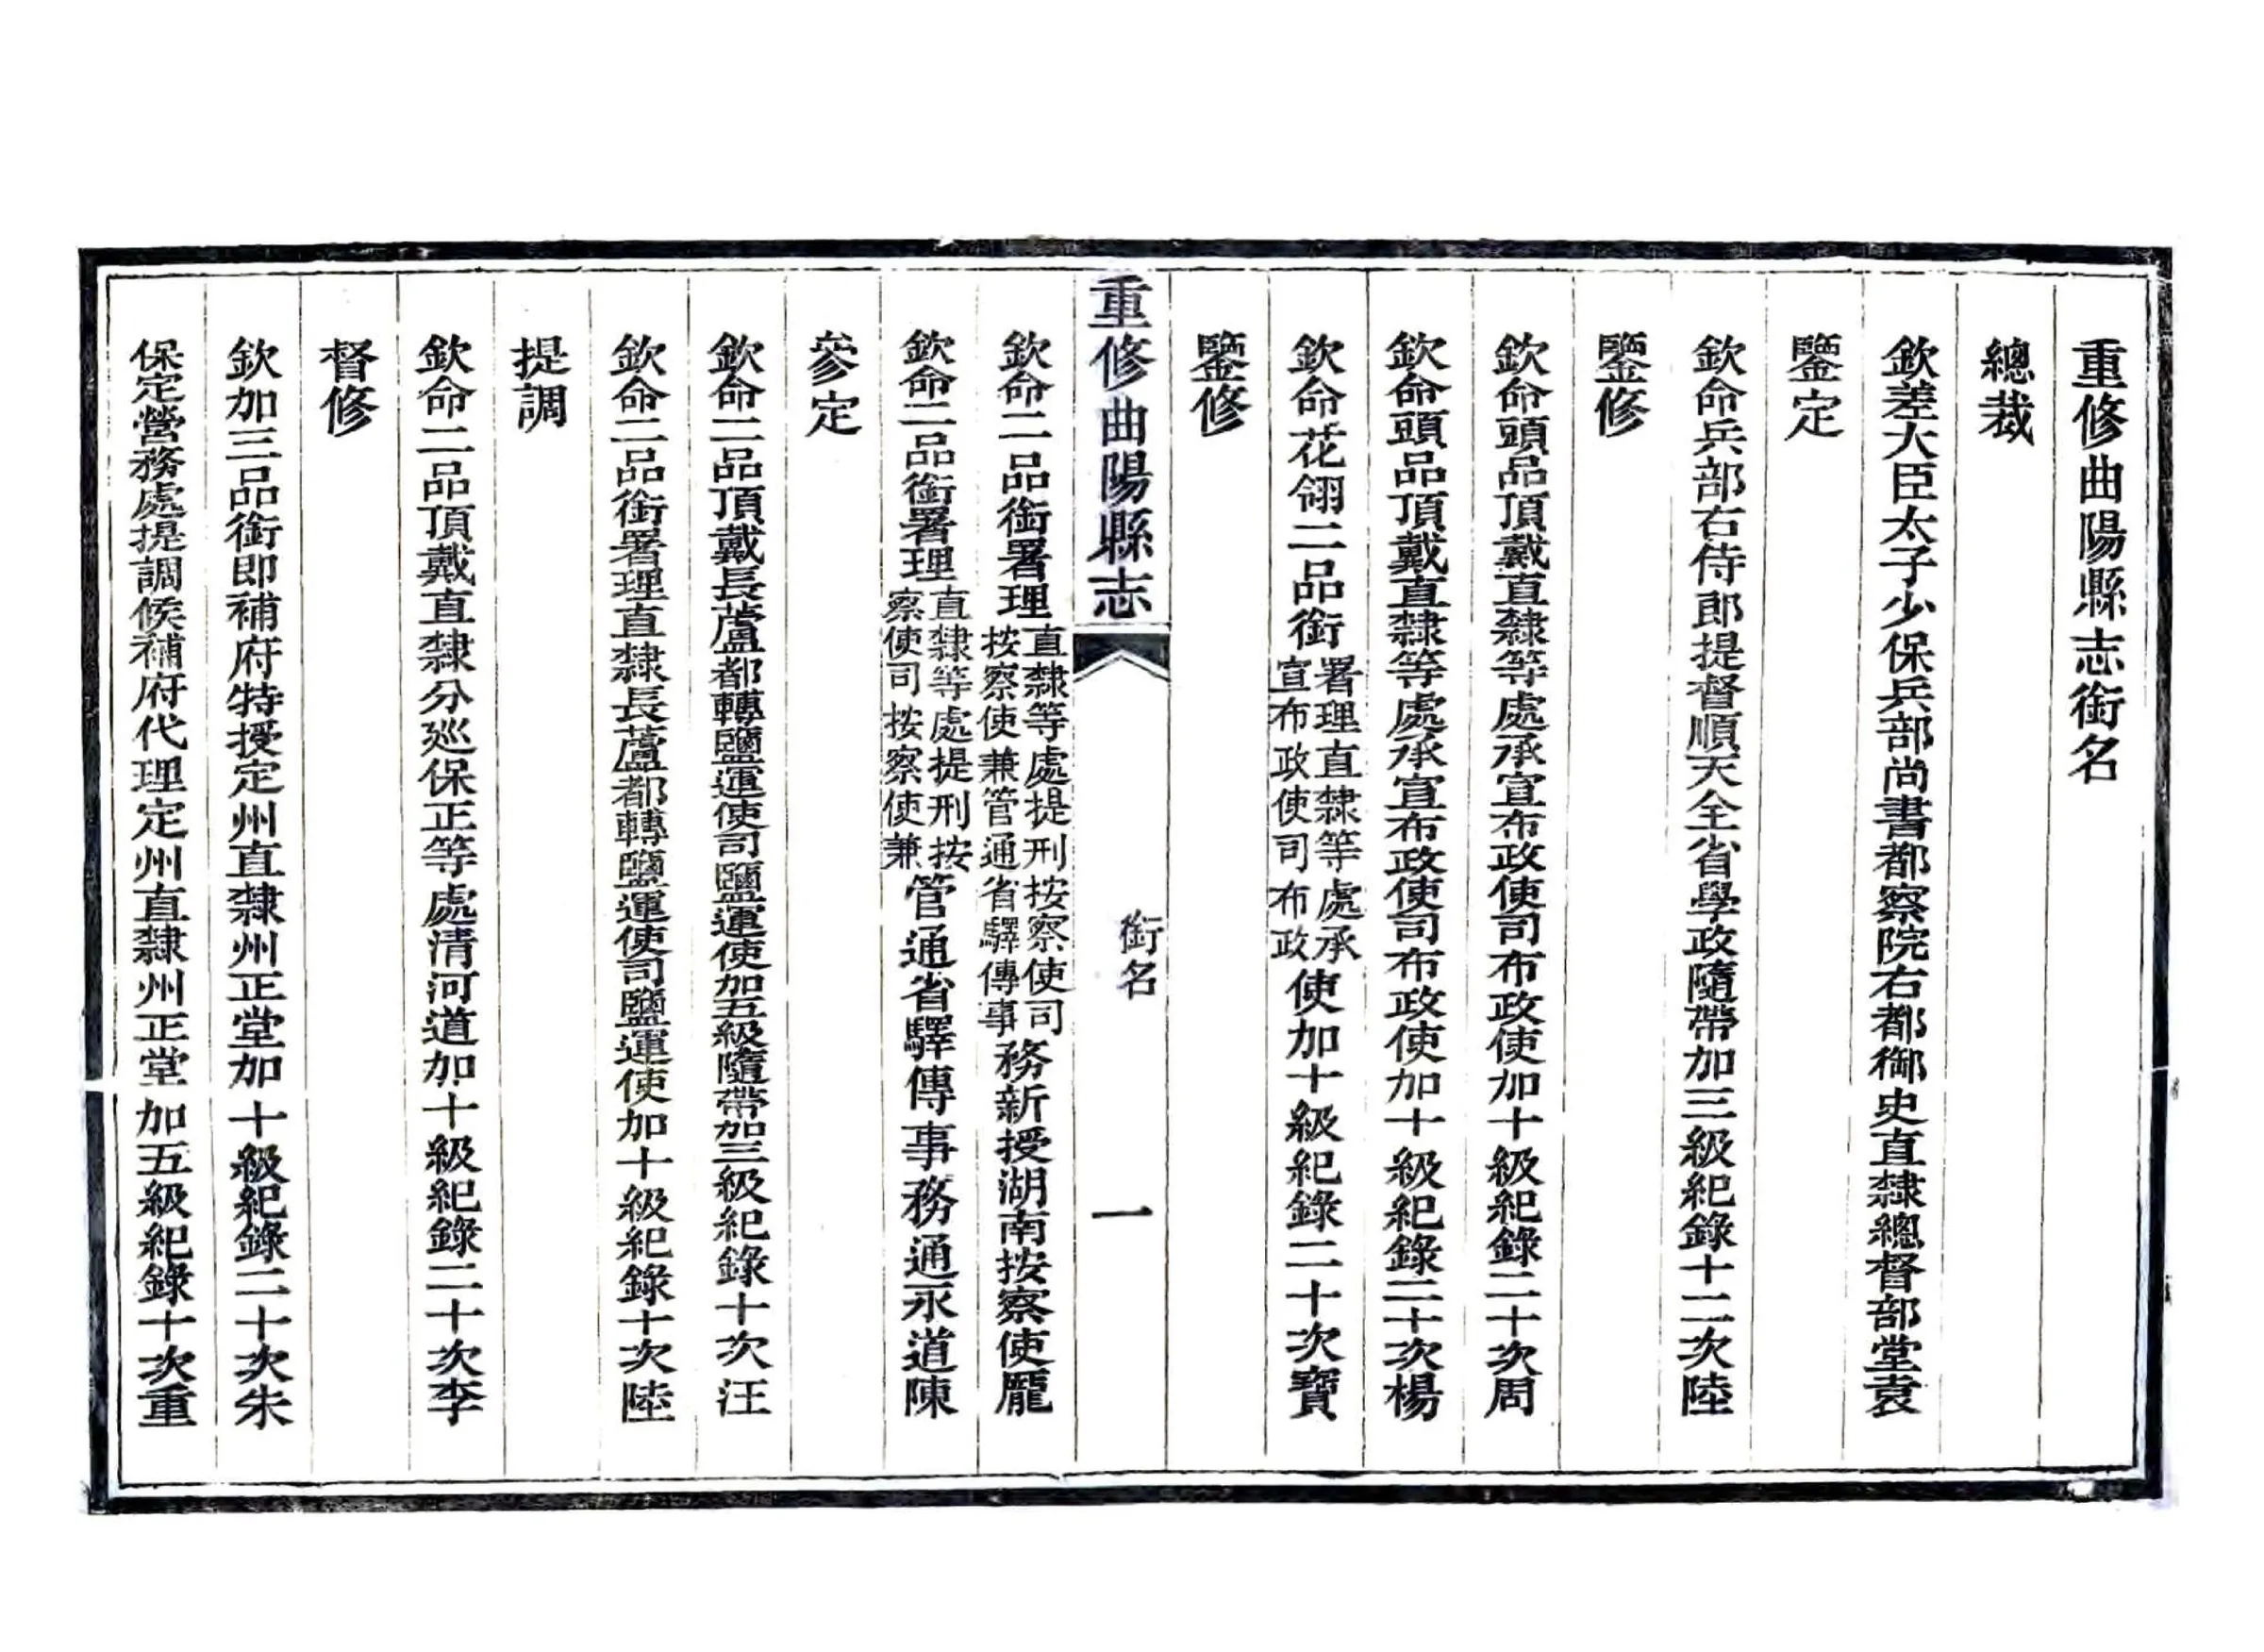 重修曲陽縣志銜名
總裁
欽差大臣太子少保兵部尚書都察院右都御史直隸總督部堂袁
鑒定
欽命兵部右侍郎提督順天全省學政隨帶加三級紀錄十二次陸
鑒修
欽命頭品頂戴直隸等處承宣布政使司布政使加十級紀錄二十次周
欽命頭品頂戴直隸等處承宣布政使司布政使加十級紀錄二十次楊
欽命花翎二品銜署理直隸等處承宣布政使司布政使加十級紀錄二十次寶
鑒修
重修曲陽縣志 銜名 一
欽命二品銜署理直隸等處提刑按察使司按察使兼管通省驛傳事務新授湖南按察使龎
欽命二品銜署理直隸等處提刑按察使司按察使兼管通省驛傳事務通永道陳
參定
欽命二品頂戴長蘆都轉鹽運使司鹽運使加五級隨帶加三級紀錄十次汪
欽命二品銜署理直隸長蘆都轉鹽運使司鹽運使加十級紀錄十次陸
提調
欽命二品頂戴直隸分巡保正等處清河道加十級紀錄二十次李
督修
欽加三品銜即補府特授定州直隸州正堂加十級紀錄二十次朱
保定營務處提調候補府代理定州直隸州正堂加五級紀錄十次重